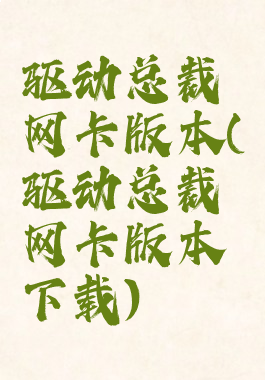 驱动总裁
网卡版本(
驱动总裁
网卡版本
下载)